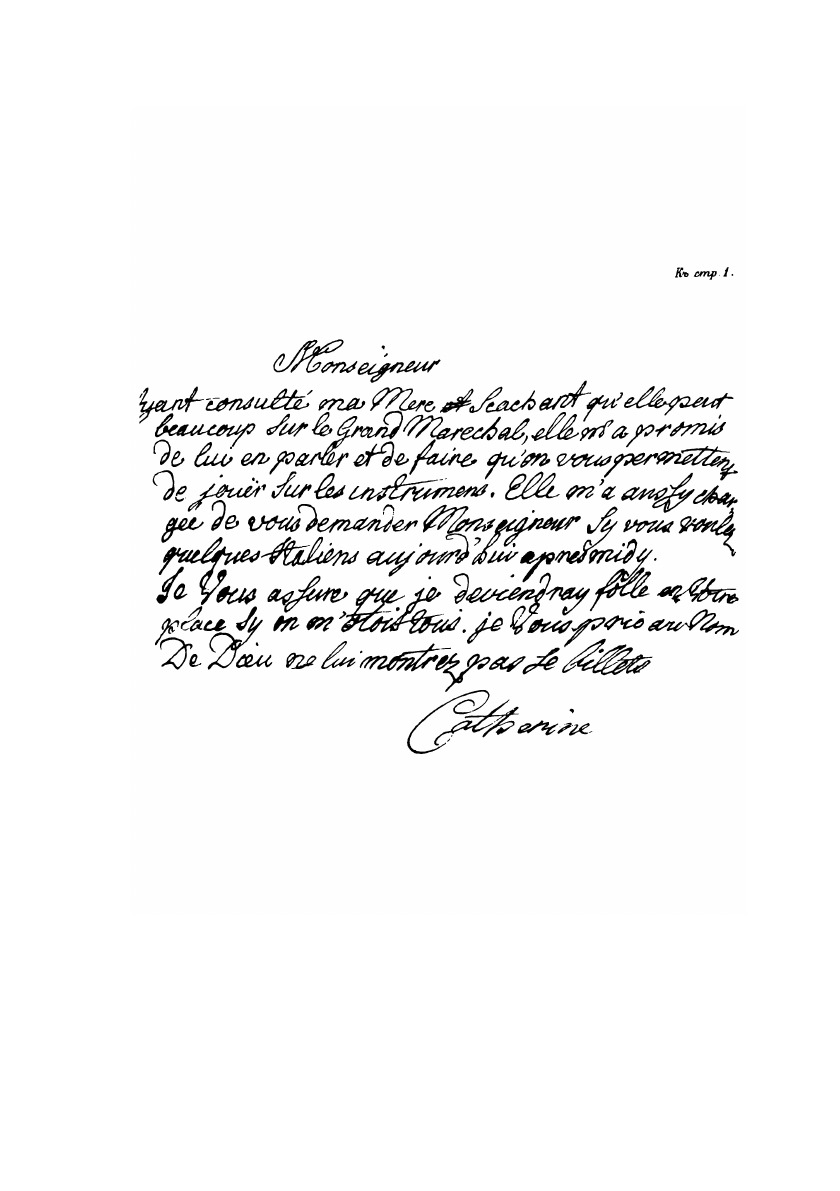 Къ стр. 1.
Monseigneur
Ayant consulté ma Mere et Scachant qu'elle peut
beaucoup sur le Grand Marechal, elle m'a promis
de lui en parler et de faire qu'on vous permettent
de jouër sur les instrumens. Elle m'a aussy char
gée de vous demander Monseigneur sy vous voulez
quelques Italiens aujourd'hui apresmidy.
Je Vous assure que je deviendray folle en Votre
place sy on m'otois tous. je Vous prie au Nom
De Dieu ne lui montrez pas se billets
Catherine